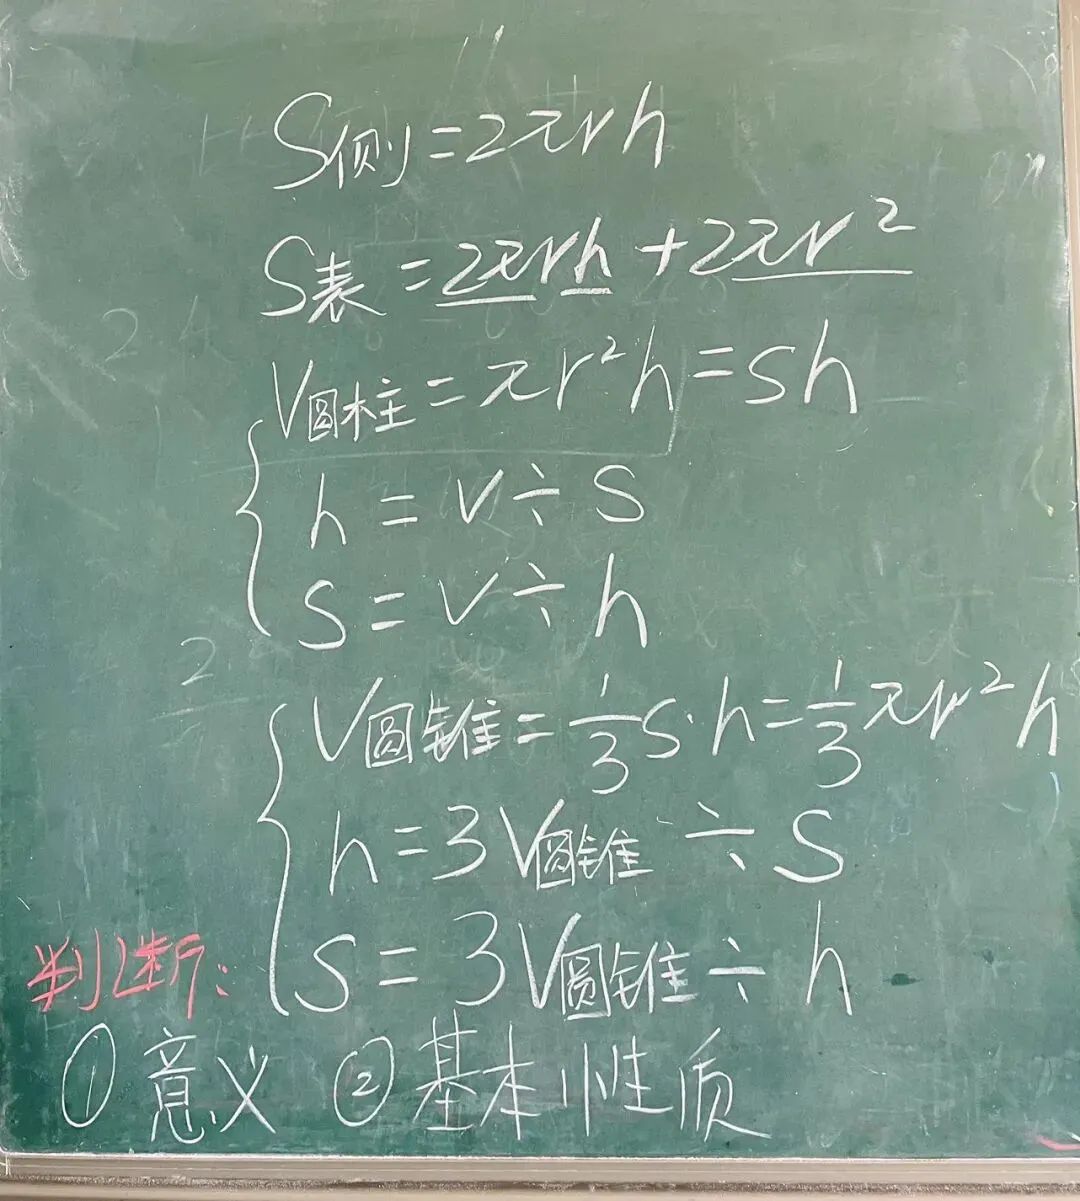 S侧=2πrh
S表=2πrh+2πr²
V圆柱=πr²h=sh
h=V÷S
S=V÷h
V圆锥=1/3s·h=1/3πr²h
h=3V圆锥÷S
S=3V圆锥÷h
判断:
①意义 ②基本性质